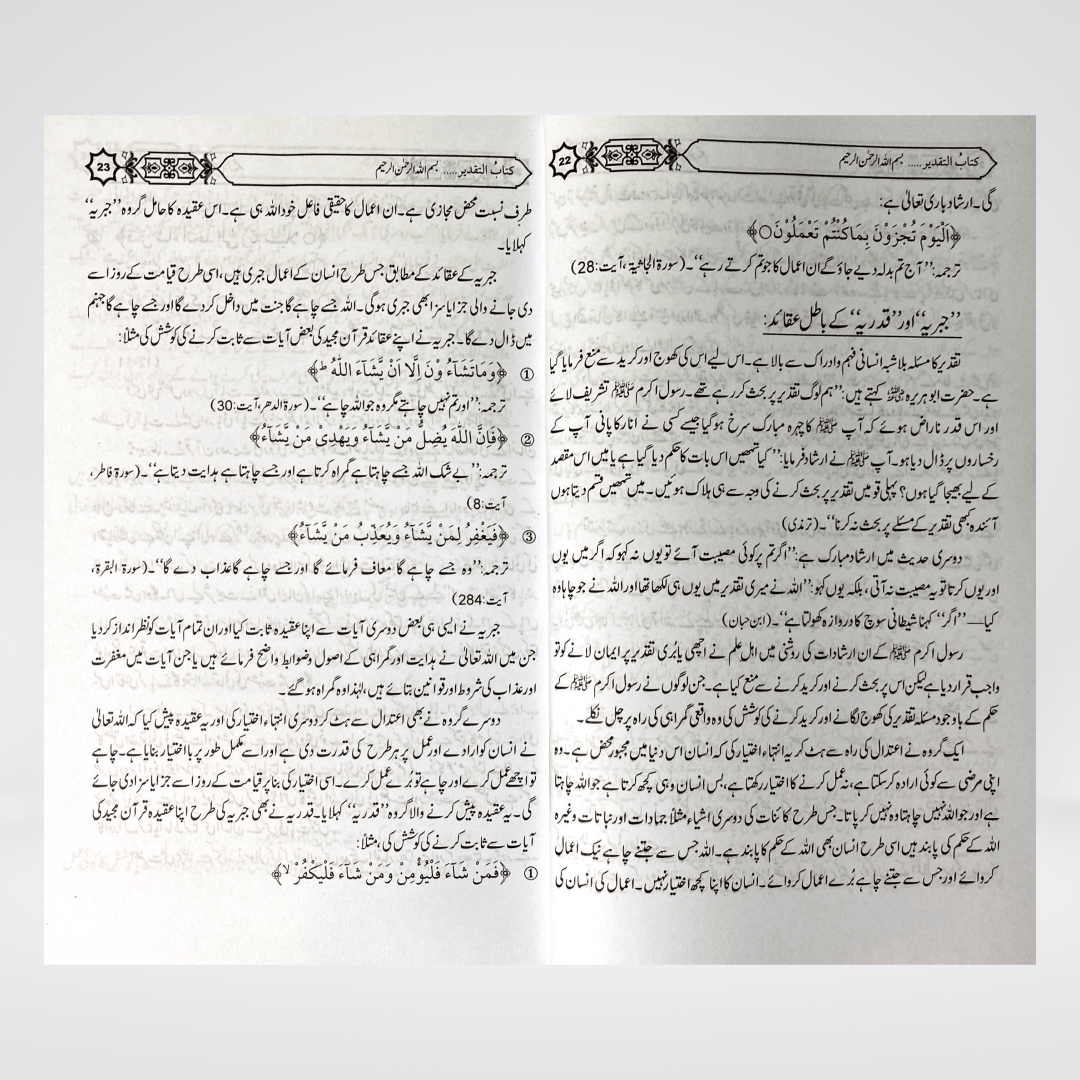 کتابُ التقدیر..... بسم اللہ الرحمٰن الرحیم
22
گی۔ ارشاد باری تعالیٰ ہے:
﴿اَلْیَوْمَ تُجْزَوْنَ بِمَاکُنْتُمْ تَعْمَلُوْنَ○﴾
ترجمہ:’’آج تم بدلہ دیے جاؤ گے ان اعمال کا جو تم کرتے رہے‘‘۔ (سورۃ الجاثیۃ، آیت:28)
’’جبریہ‘‘ اور ’’قدریہ‘‘ کے باطل عقائد:
تقدیر کا مسئلہ بلاشبہ انسانی فہم و ادراک سے بالا ہے۔ اس لیے اس کی کھوج اور کرید سے منع فرمایا گیا
ہے۔ حضرت ابوہریرہ رضی اللہ عنہ کہتے ہیں:’’ہم لوگ تقدیر پر بحث کر رہے تھے۔ رسول اکرم ﷺ تشریف لائے
اور اس قدر ناراض ہوئے کہ آپ ﷺ کا چہرہ مبارک سرخ ہوگیا جیسے کسی نے انار کا پانی آپ کے
رخساروں پر ڈال دیا ہو۔ آپ ﷺ نے ارشاد فرمایا: ’’کیا تمھیں اس بات کا حکم دیا گیا ہے یا میں اس مقصد
کے لیے بھیجا گیا ہوں؟ پہلی قومیں تقدیر پر بحث کرنے کی وجہ سے ہی ہلاک ہوئیں۔ میں تمھیں قسم دیتا ہوں
آئندہ کبھی تقدیر کے مسئلے پر بحث نہ کرنا‘‘۔ (ترمذی)
دوسری حدیث میں ارشاد مبارک ہے:’’اگر تم پر کوئی مصیبت آئے تو یوں نہ کہو کہ اگر میں یوں
اور یوں کرتا تو یہ مصیبت نہ آتی، بلکہ یوں کہو:’’اللہ نے میری تقدیر میں یوں ہی لکھا تھا اور اللہ نے جو چاہا وہ
کیا—’’اگر‘‘ کہنا شیطانی سوچ کا دروازہ کھولتا ہے‘‘۔ (ابن حبان)
رسول اکرم ﷺ کے ان ارشادات کی روشنی میں اہل علم نے اچھی یا بُری تقدیر پر ایمان لانے کو تو
واجب قرار دیا ہے لیکن اس پر بحث کرنے اور کرید کرنے سے منع کیا ہے۔ جن لوگوں نے رسول اکرم ﷺ کے
حکم کے باوجود مسئلہ تقدیر کی کھوج لگانے اور کرید کرنے کی کوشش کی وہ واقعی گمراہی کی راہ پر چل نکلے۔
ایک گروہ نے اعتدال کی راہ سے ہٹ کر یہ انتہاء اختیار کی کہ انسان اس دنیا میں مجبور محض ہے۔ وہ
اپنی مرضی سے کوئی ارادہ کرسکتا ہے، نہ عمل کرنے کا اختیار رکھتا ہے، بس انسان وہی کچھ کرتا ہے جو اللہ چاہتا
ہے اور جو اللہ نہیں چاہتا وہ نہیں کر پاتا۔ جس طرح کائنات کی دوسری اشیاء مثلاً جمادات اور نباتات وغیرہ
اللہ کے حکم کی پابند ہیں اسی طرح انسان بھی اللہ کے حکم کا پابند ہے۔ اللہ جس سے جتنے چاہے نیک اعمال
کروائے اور جس سے جتنے چاہے بُرے اعمال کروائے۔ انسان کا اپنا کچھ اختیار نہیں۔ اعمال کی انسان کی
کتابُ التقدیر..... بسم اللہ الرحمٰن الرحیم
23
طرف نسبت محض مجازی ہے۔ ان اعمال کا حقیقی فاعل خود اللہ ہی ہے۔ اس عقیدہ کا حامل گروہ ’’جبریہ‘‘
کہلایا۔
جبریہ کے عقائد کے مطابق جس طرح انسان کے اعمال جبری ہیں، اسی طرح قیامت کے روز اسے
دی جانے والی جزا یا سزا بھی جبری ہوگی۔ اللہ جسے چاہے گا جنت میں داخل کر دے گا اور جسے چاہے گا جہنم
میں ڈال دے گا۔ جبریہ نے اپنے عقائد قرآن مجید کی بعض آیات سے ثابت کرنے کی کوشش کی مثلاً:
① ﴿وَمَاتَشَآءُ وْنَ اِلَّا اَنْ یَّشَآءَ اللّٰہُ ط﴾
ترجمہ:’’اور تم نہیں چاہتے مگر وہ جو اللہ چاہے‘‘۔ (سورۃ الدھر، آیت:30)
② ﴿فَاِنَّ اللّٰہَ یُضِلُّ مَنْ یَّشَآءُ وَیَھْدِیْ مَنْ یَّشَآءُ﴾
ترجمہ:’’بے شک اللہ جسے چاہتا ہے گمراہ کرتا ہے اور جسے چاہتا ہے ہدایت دیتا ہے‘‘۔ (سورۃ فاطر،
آیت:8)
③ ﴿فَیَغْفِرُ لِمَنْ یَّشَآءُ وَیُعَذِّبُ مَنْ یَّشَآءُ﴾
ترجمہ:’’وہ جسے چاہے گا معاف فرمائے گا اور جسے چاہے گا عذاب دے گا‘‘۔ (سورۃ البقرۃ،
آیت:284)
جبریہ نے ایسی ہی بعض دوسری آیات سے اپنا عقیدہ ثابت کیا اور ان تمام آیات کو نظر انداز کر دیا
جن میں اللہ تعالیٰ نے ہدایت اور گمراہی کے اصول و ضوابط واضح فرمائے ہیں یا جن آیات میں مغفرت
اور عذاب کی شروط اور قوانین بتائے ہیں، لہٰذا وہ گمراہ ہوگئے۔
دوسرے گروہ نے بھی اعتدال سے ہٹ کر دوسری انتہاء اختیار کی اور یہ عقیدہ پیش کیا کہ اللہ تعالیٰ
نے انسان کو ارادے اور عمل پر ہر طرح کی قدرت دی ہے اور اسے مکمل طور پر با اختیار بنایا ہے۔ چاہے
تو اچھے عمل کرے اور چاہے تو بُرے عمل کرے۔ اسی اختیار کی بنا پر قیامت کے روز اسے جزا یا سزا دی جائے
گی۔ یہ عقیدہ پیش کرنے والا گروہ ’’قدریہ‘‘ کہلایا۔ قدریہ نے بھی جبریہ کی طرح اپنا عقیدہ قرآن مجید کی
آیات سے ثابت کرنے کی کوشش کی، مثلاً:
① ﴿فَمَنْ شَآءَ فَلْیُؤْمِنْ وَمَنْ شَآءَ فَلْیَکْفُرْ لا﴾